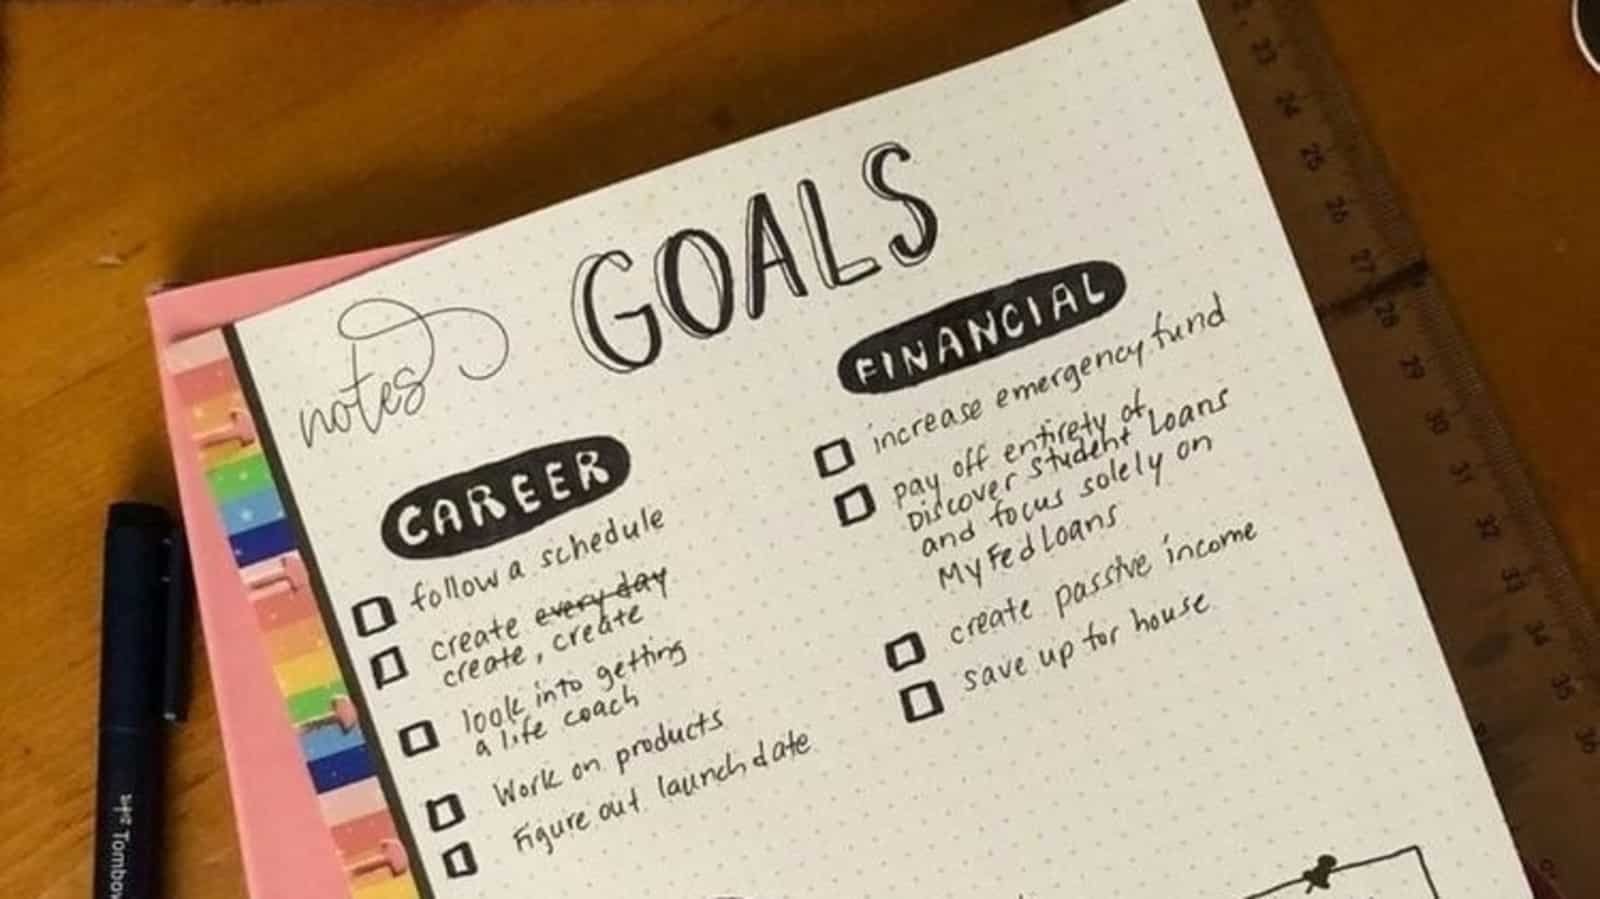 GOALS
notes
CAREER
follow a schedule
create every day
create, create
look into getting
a life coach
Work on products
Figure out launch date
FINANCIAL
increase emergency fund
pay off entirety of
Discover student loans
and focus solely on
MyFedLoans
create passive income
save up for house
Tombow
23
24
25
26
27
28
29
30
31
32
33
34
35
36